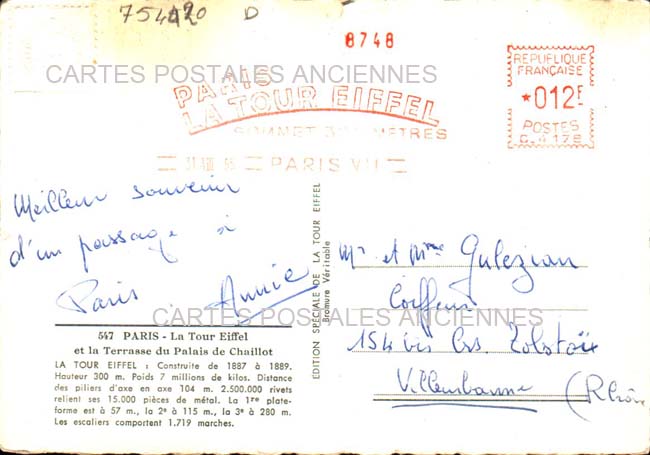 754420 D
8748
CARTES POSTALES ANCIENNES
PARIS
LA TOUR EIFFEL
SOMMET 300 METRES
PARIS VII
REPUBLIQUE
FRANÇAISE
*012F
POSTES
Meilleur souvenir
d'un passage à
Paris. Annie
EDITION SPÉCIALE DE LA TOUR EIFFEL
Bromure Véritable
Mr et Mme Gulezian
Coiffeur
154 bis Crs. Tolstoï
Villeurbanne (Rhône
CARTES POSTALES ANCIENNES
547 PARIS - La Tour Eiffel
et la Terrasse du Palais de Chaillot
LA TOUR EIFFEL : Construite de 1887 à 1889.
Hauteur 300 m. Poids 7 millions de kilos. Distance
des piliers d'axe en axe 104 m. 2.500.000 rivets
relient ses 15.000 pièces de métal. La 1re plate-
forme est à 57 m., la 2e à 115 m., la 3e à 280 m.
Les escaliers comportent 1.719 marches.